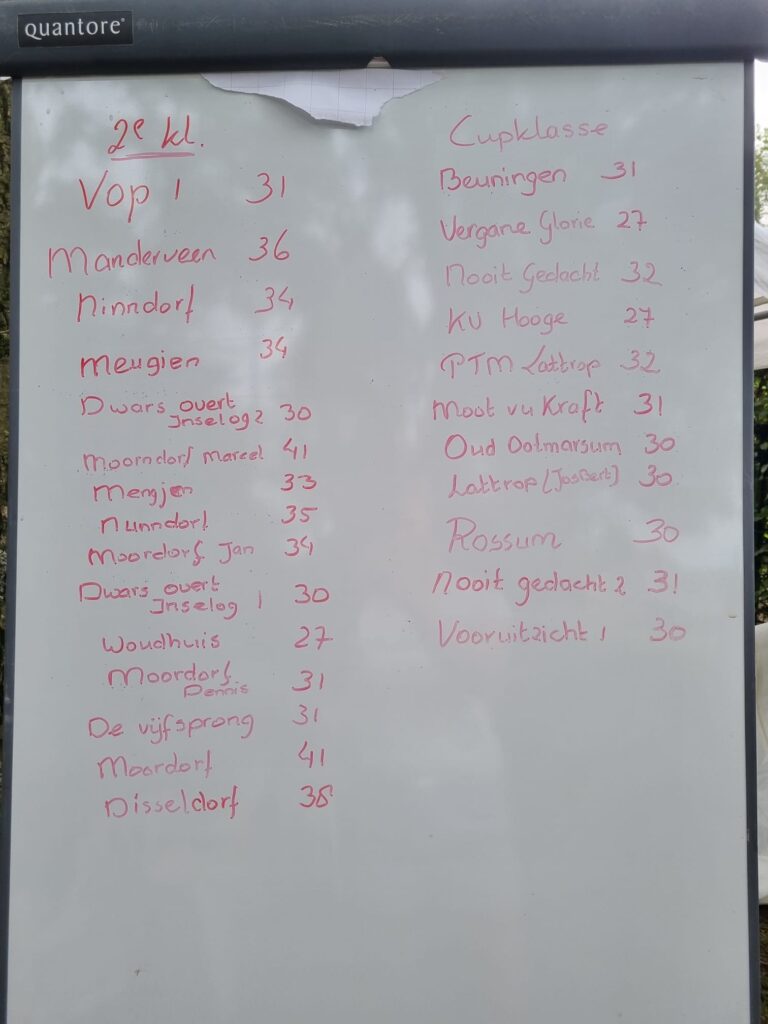 quantore
2e kl.
Vop 1 31
Manderveen 36
Ninndorf 34
Meugien 34
Dwars overt
Inselog 2 30
Moorndorf Marcel 41
Mengjen 33
Nunndorf 35
Moordorf Jan 34
Dwars overt
Inselog 1 30
Woudhuis 27
Moordorf
Dennis 31
De vijfsprong 31
Moordorf 41
Disseldorf 38
Cupklasse
Beuningen 31
Vergane Glorie 27
Nooit Gedacht 32
KV Hooge 27
PTM Lattrop 32
Moot vu Kraft 31
Oud Ootmarsum 30
Lattrop (JosBert) 30
Rossum 30
Nooit gedacht 2 31
Vooruitzicht 1 30